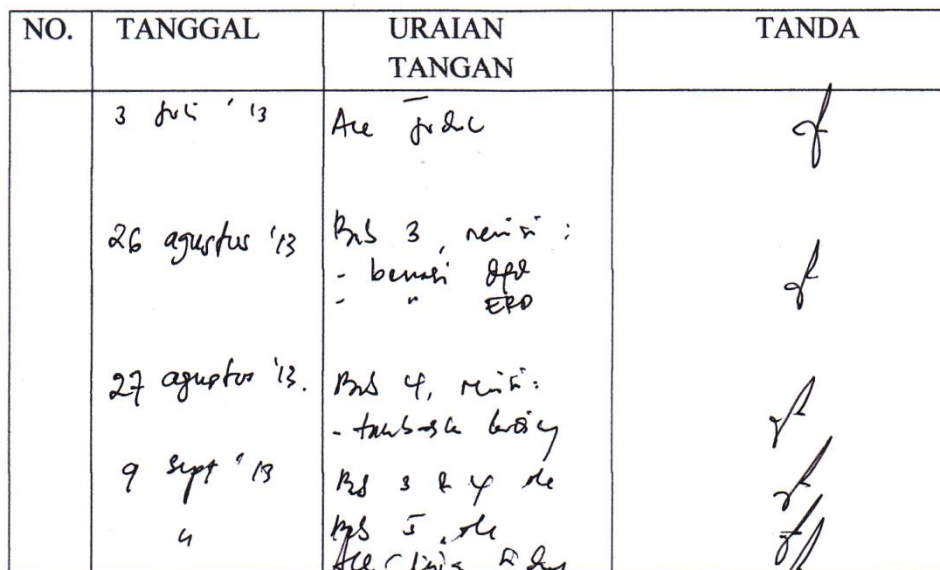 NO. TANGGAL URAIAN TANDA
TANGAN
3 Juli '13 Acc judul
26 agustus '13 Bab 3, revisi :
- benahi dfd
- " ERD
27 agustus '13. Bab 4, revisi :
- tambah
9 Sept '13 Bab 3 & 4 ok
" Bab 5, ok
Acc